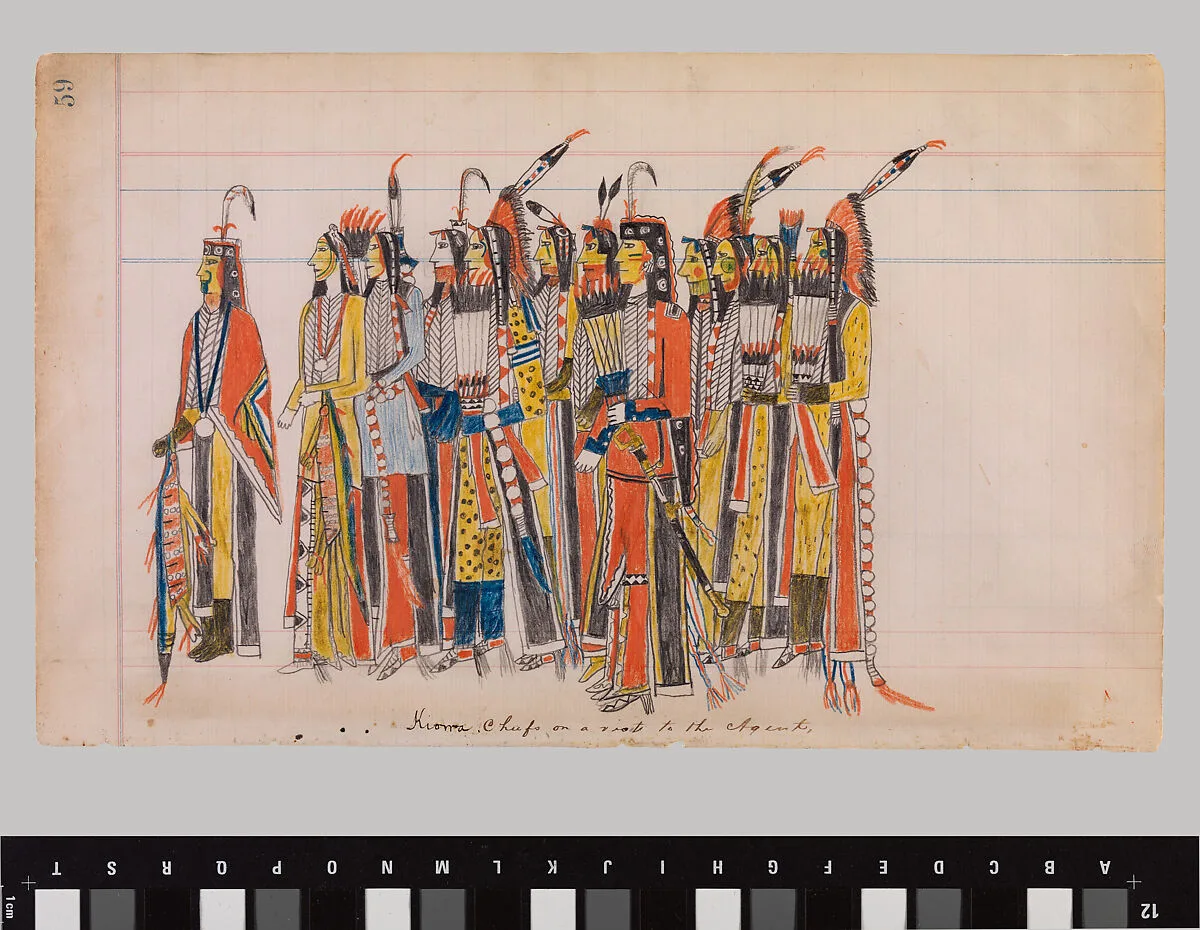 59
Kiowa Chiefs on a visit to the Agent,
T S R Q P O N M L K J I H G F E D C B A
1cm
12